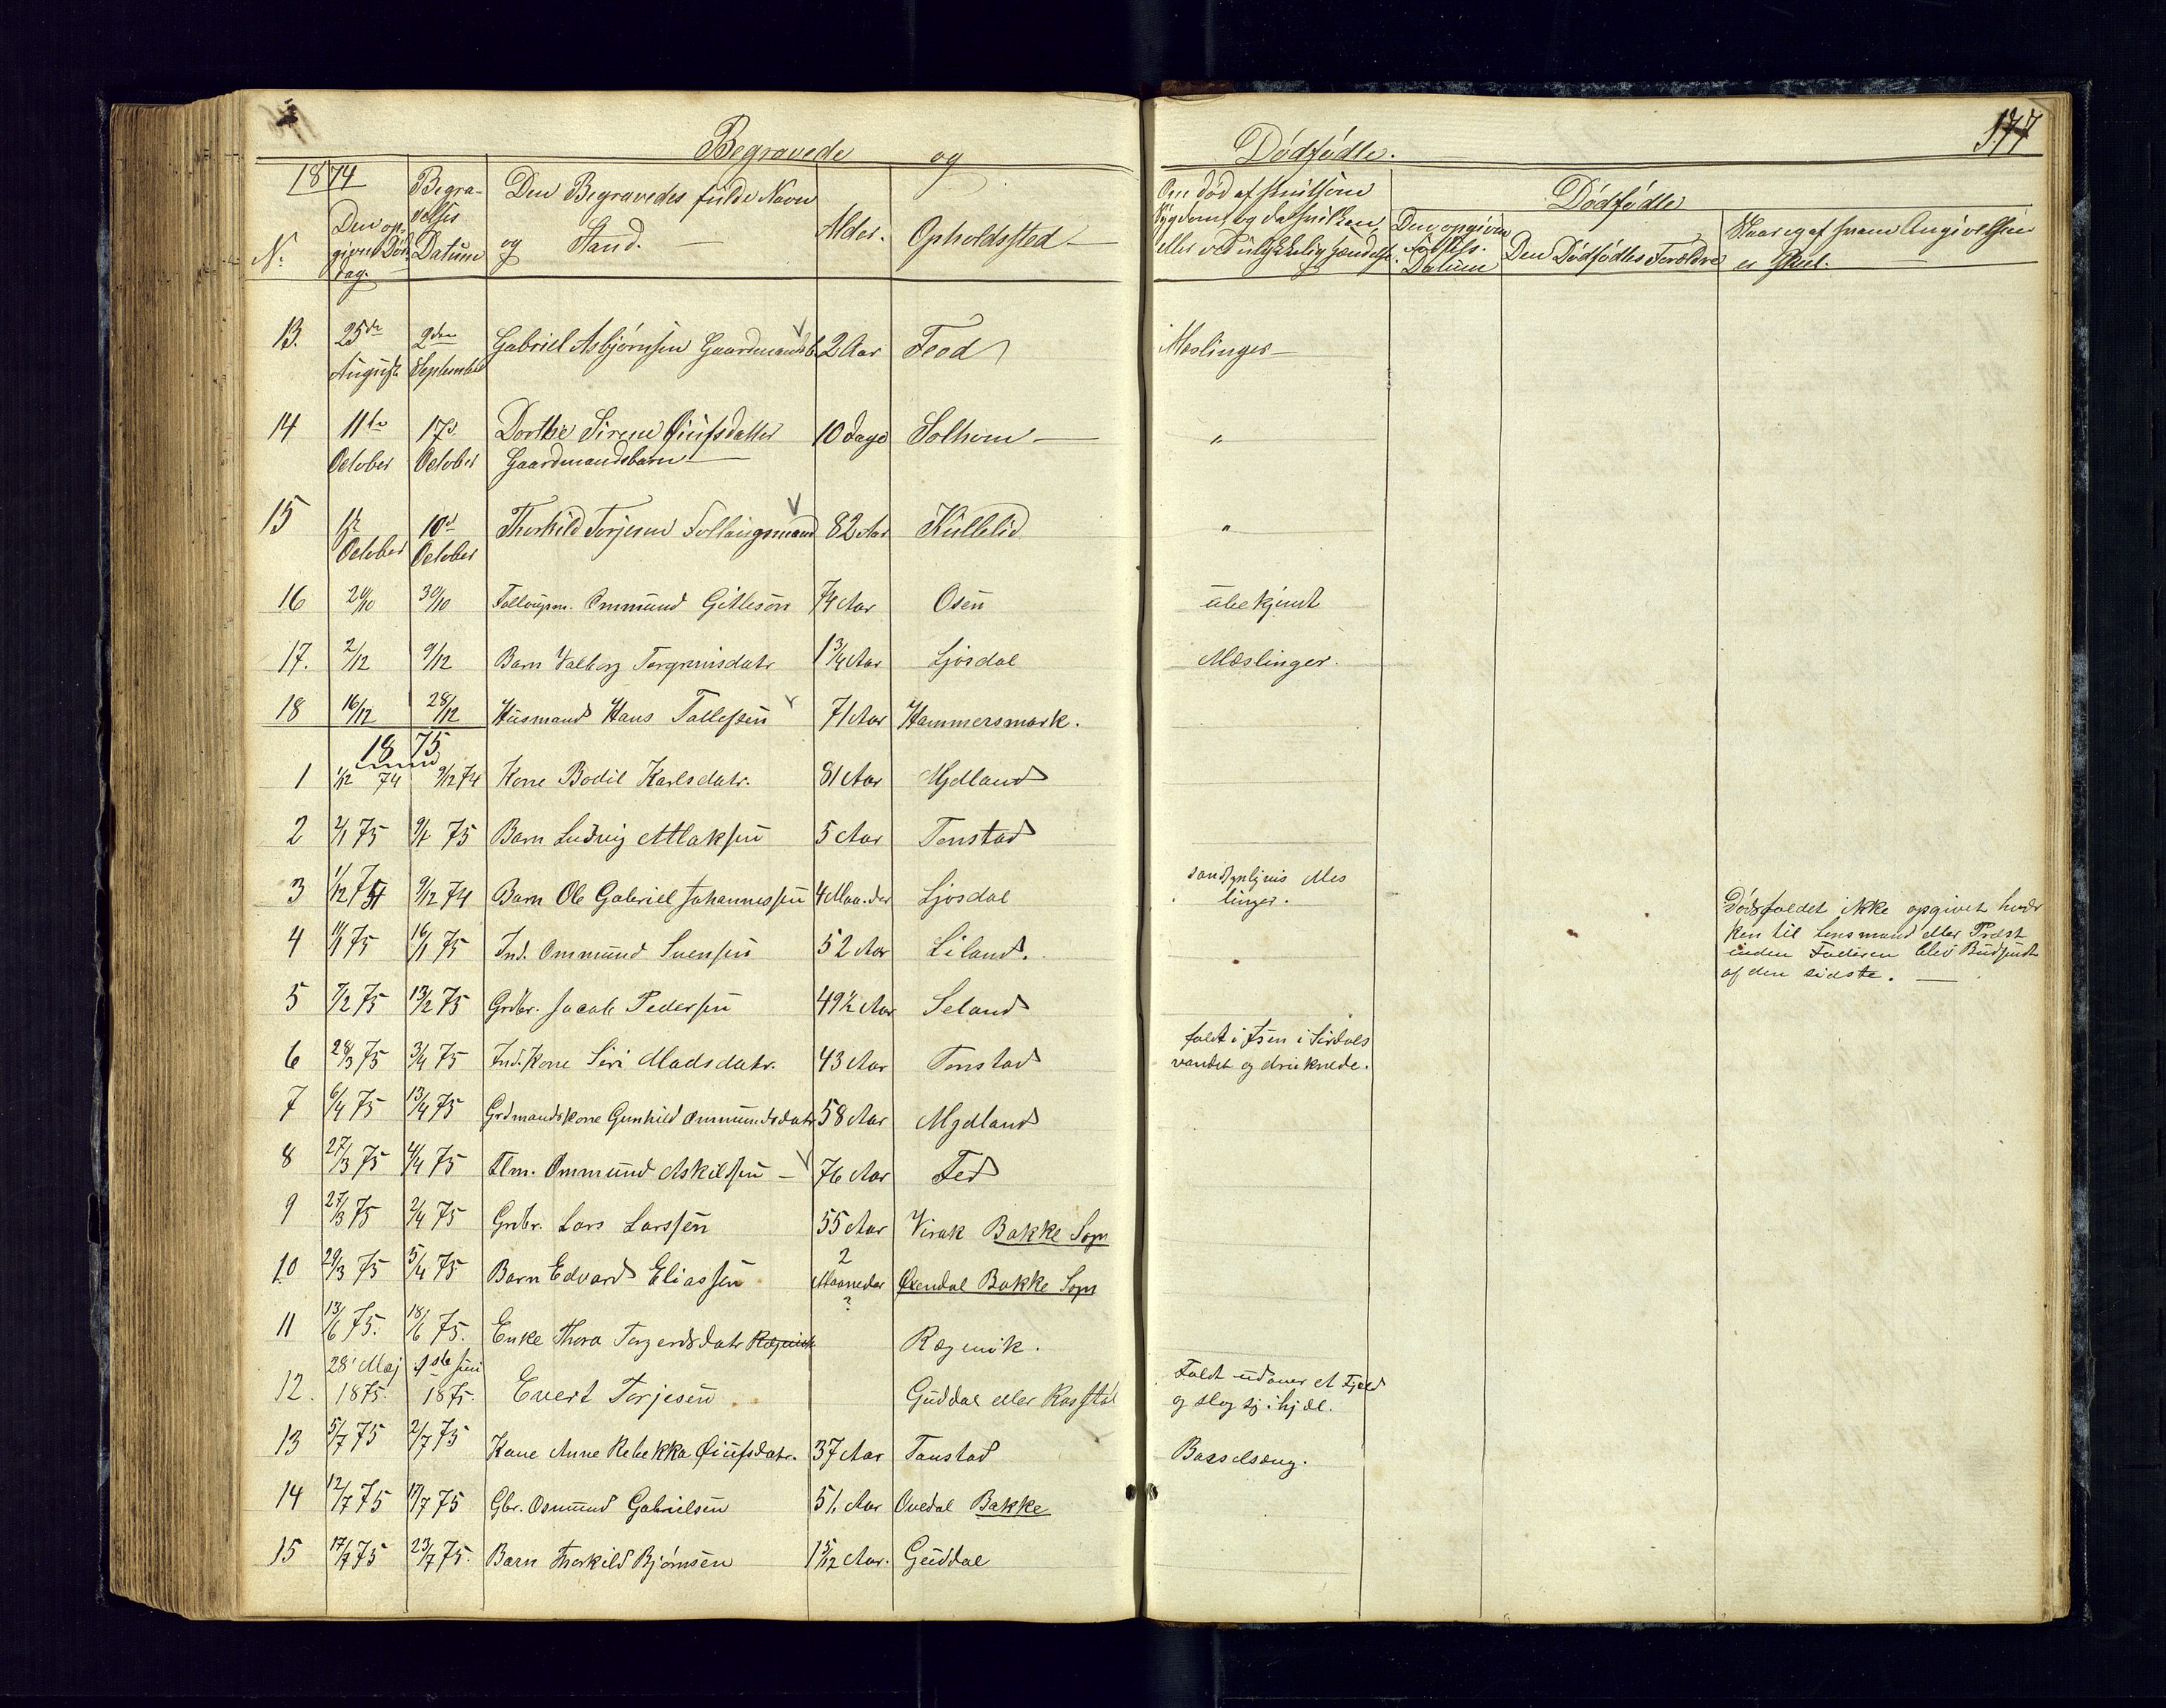 Begravede og Dødfødte.
177
1874
No Den opgivne Døds dag. Begravelses Datum Den Begravedes fulde Navn og Stand. Alder. Opholdssted
Om død af smitsom Sygdom og da hvilken, eller ved ulykkelig Hændelse. Dødfødte
Den opgivne Fødsels Datum Den Dødfødtes Forældre Hvor og af hvem Angivelsen er skeet.
13. 25de August 2den September Gabriel Asbjørnsen Gaardmandsb. 2 Aar Feed Meslinger
14 11te October 17d. October Dorthe Sirene Øiufsdatter Gaardmandsbarn 10 Dage Solhom "
15 1ste October 10d October Thorkild Torjesen Follaugsmand 82 Aar Kullelid "
16 20/10 30/10 Follaugsm. Ommund Gitlesøn 74 Aar Osen ubekjendt
17. 2/12 9/12 Barn Valborg Torgrimsdatr 1 3/4 Aar Ljosdal Mæslinger.
18 16/12 28/12 Husmand Hans Tallefsen 71 Aar Hammersmark.
1875
1 1/12 74 9/12 74 Kone Bodil Karlsdatr. 81 Aar Mydland
2 2/1 75 9/1 75 Barn Ludvig Atlaksen 5 Aar Tonstad
3 1/12 74 9/12 74 Barn Ole Gabriel Johannessen 4 Maa.der Ljosdal sandsynligvis Mes
linger.
Dødsfaldet ikke opgivet hver
ken til Lensmand eller Præst
inden Faderen blev Budsendt
af den sidste.
4 11/1 75 16/1 75 Ind. Ommund Svensen 52 Aar Liland.
5 7/2 75 13/2 75 Grdbr. Jacob Pedersen 49 1/2 Aar Seland
6 28/3 75 3/4 75 Ind. Kone Siri Madsdatr. 43 Aar Tonstad faldt i Isen i Sirdals
vandet og druknede.
7 6/4 75 13/4 75 Grdmandskone Gunhild Ommundsdatr 58 Aar Mydland
8 27/3 75 4/4 75 Flm. Ommund Askildsen 76 Aar Fed
9 27/3 75 2/4 75 Grdbr. Lars Larssen 55 Aar Virak Bakke Sogn
10 29/3 75 5/4 75 Barn Edvard Eliassen 2 Maaneder ? Øxendal Bakke Sogn
11 13/6 75. 18/6 75. Enke Thora Torgersdatr Rægevik Rægevik.
12. 28' Maj 1875. 1ste Juni 1875. Evert Torjesen Guddal eller Rosstøl Faldt udover et Fjeld
og slog sig ihjel.
13 5/7 75 2/7 75 Kone Anne Rebekka Øiufsdatr. 37 Aar Tonstad Barselseng.
14 12/7 75 17/7 75 Gbr. Osmund Gabrielsen 51 Aar Ovedal Bakke
15 17/7 75 23/7 75. Barn Thorkild Bjørnsen 1 5/12 Aar. Guddal